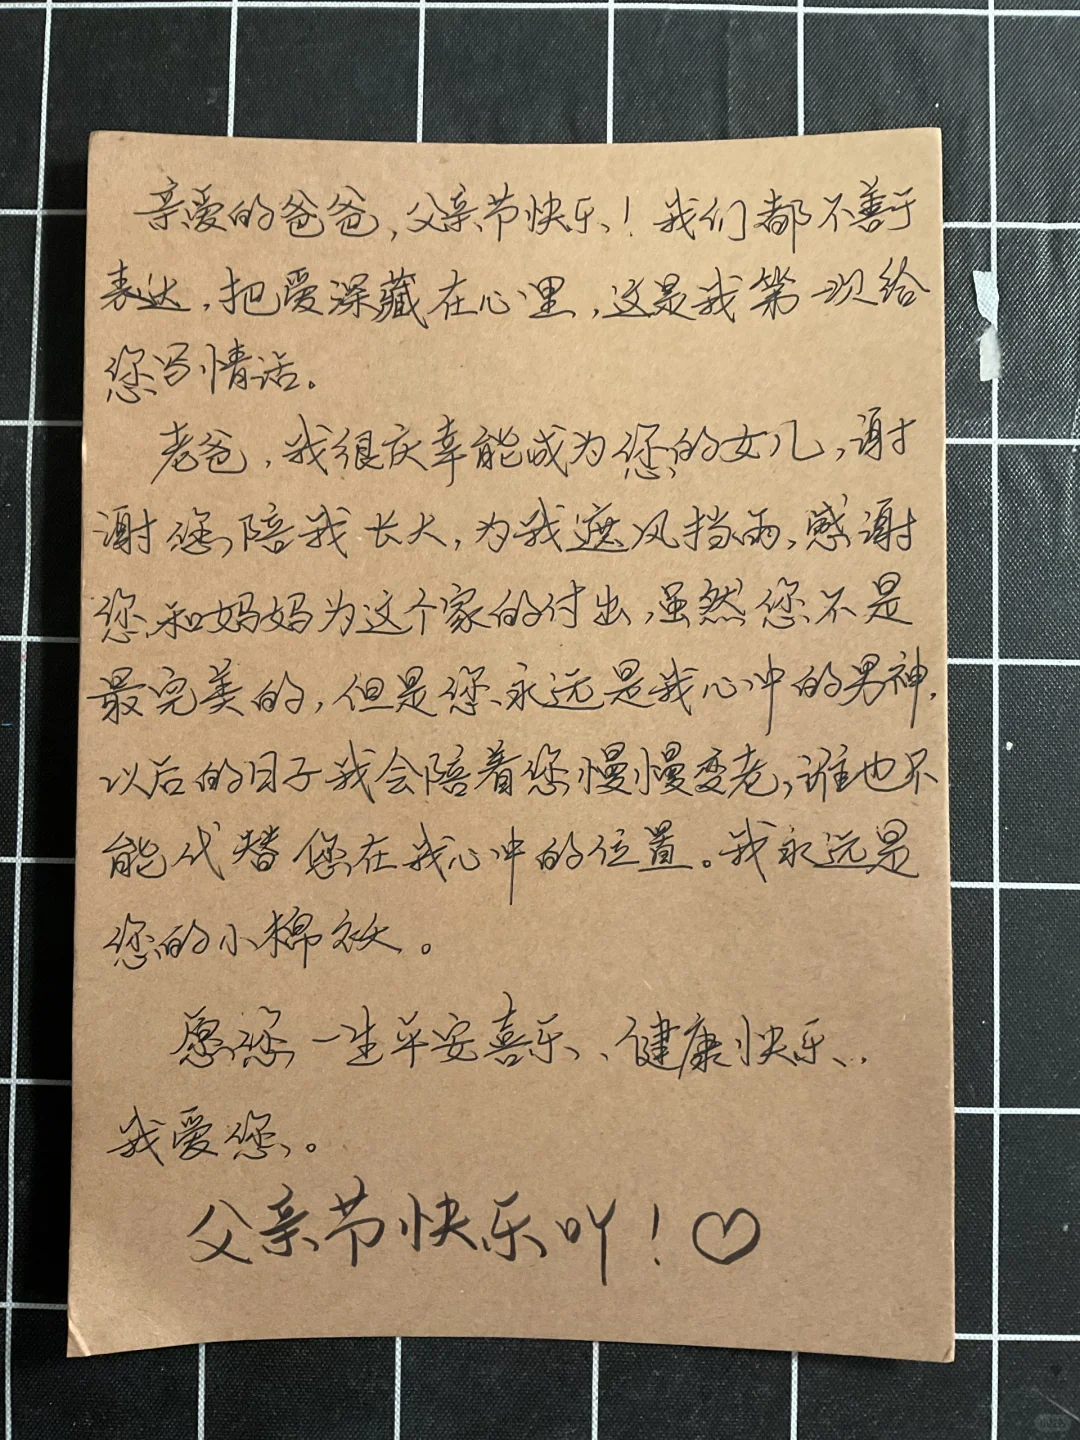 亲爱的爸爸，父亲节快乐！我们都不善于
表达，把爱深藏在心里，这是我第一次给
您写情话。
老爸，我很庆幸能成为您的女儿，谢
谢您陪我长大，为我遮风挡雨，感谢
您和妈妈为这个家的付出，虽然您不是
最完美的，但是您永远是我心中的男神，
以后的日子我会陪着您慢慢变老，谁也不
能代替您在我心中的位置。我永远是
您的小棉袄。
愿您一生平安喜乐、健康快乐，
我爱您。
父亲节快乐吖！♡